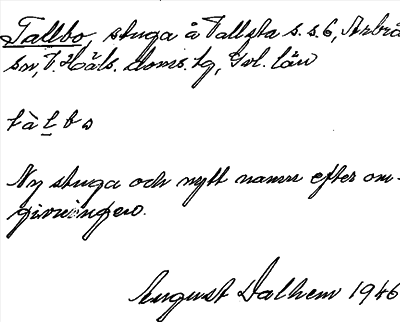 Tallbo, stuga å Vallsta s.s.6, Arbrå
sn, V. Häls. doms. tg, Gvl. län
tàl̲bo
Ny stuga och nytt namn efter om-
givningen.
August Dalhem 1946